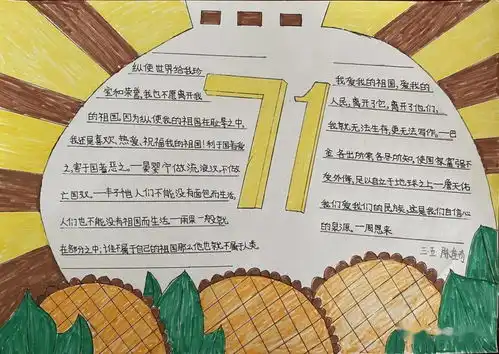 纵使世界给我珍
宝和荣誉,我也不愿离开我
的祖国,因为纵使我的祖国在耻辱之中,
我还是喜欢、热爱、祝福我的祖国!利于国者爱
之,害于国者恶之。—晏婴 宁做流浪汉,不做
亡国奴。—丰子恺 人们不能没有面包而生活,
人们也不能没有祖国而生活。—雨果 一般就
在部分之中;谁不属于自己的祖国那么他也就不属于人类
71
我爱我的祖国,爱我的
人民,离开了它,离开了他们,
我就无法生存,更无法写作。—巴
金 各出所学,各尽所知,使国家富强不
受外侮,足以自立于地球之上—詹天佑
我们爱我们的民族,这是我们自信心
的泉源。—周恩来
三五